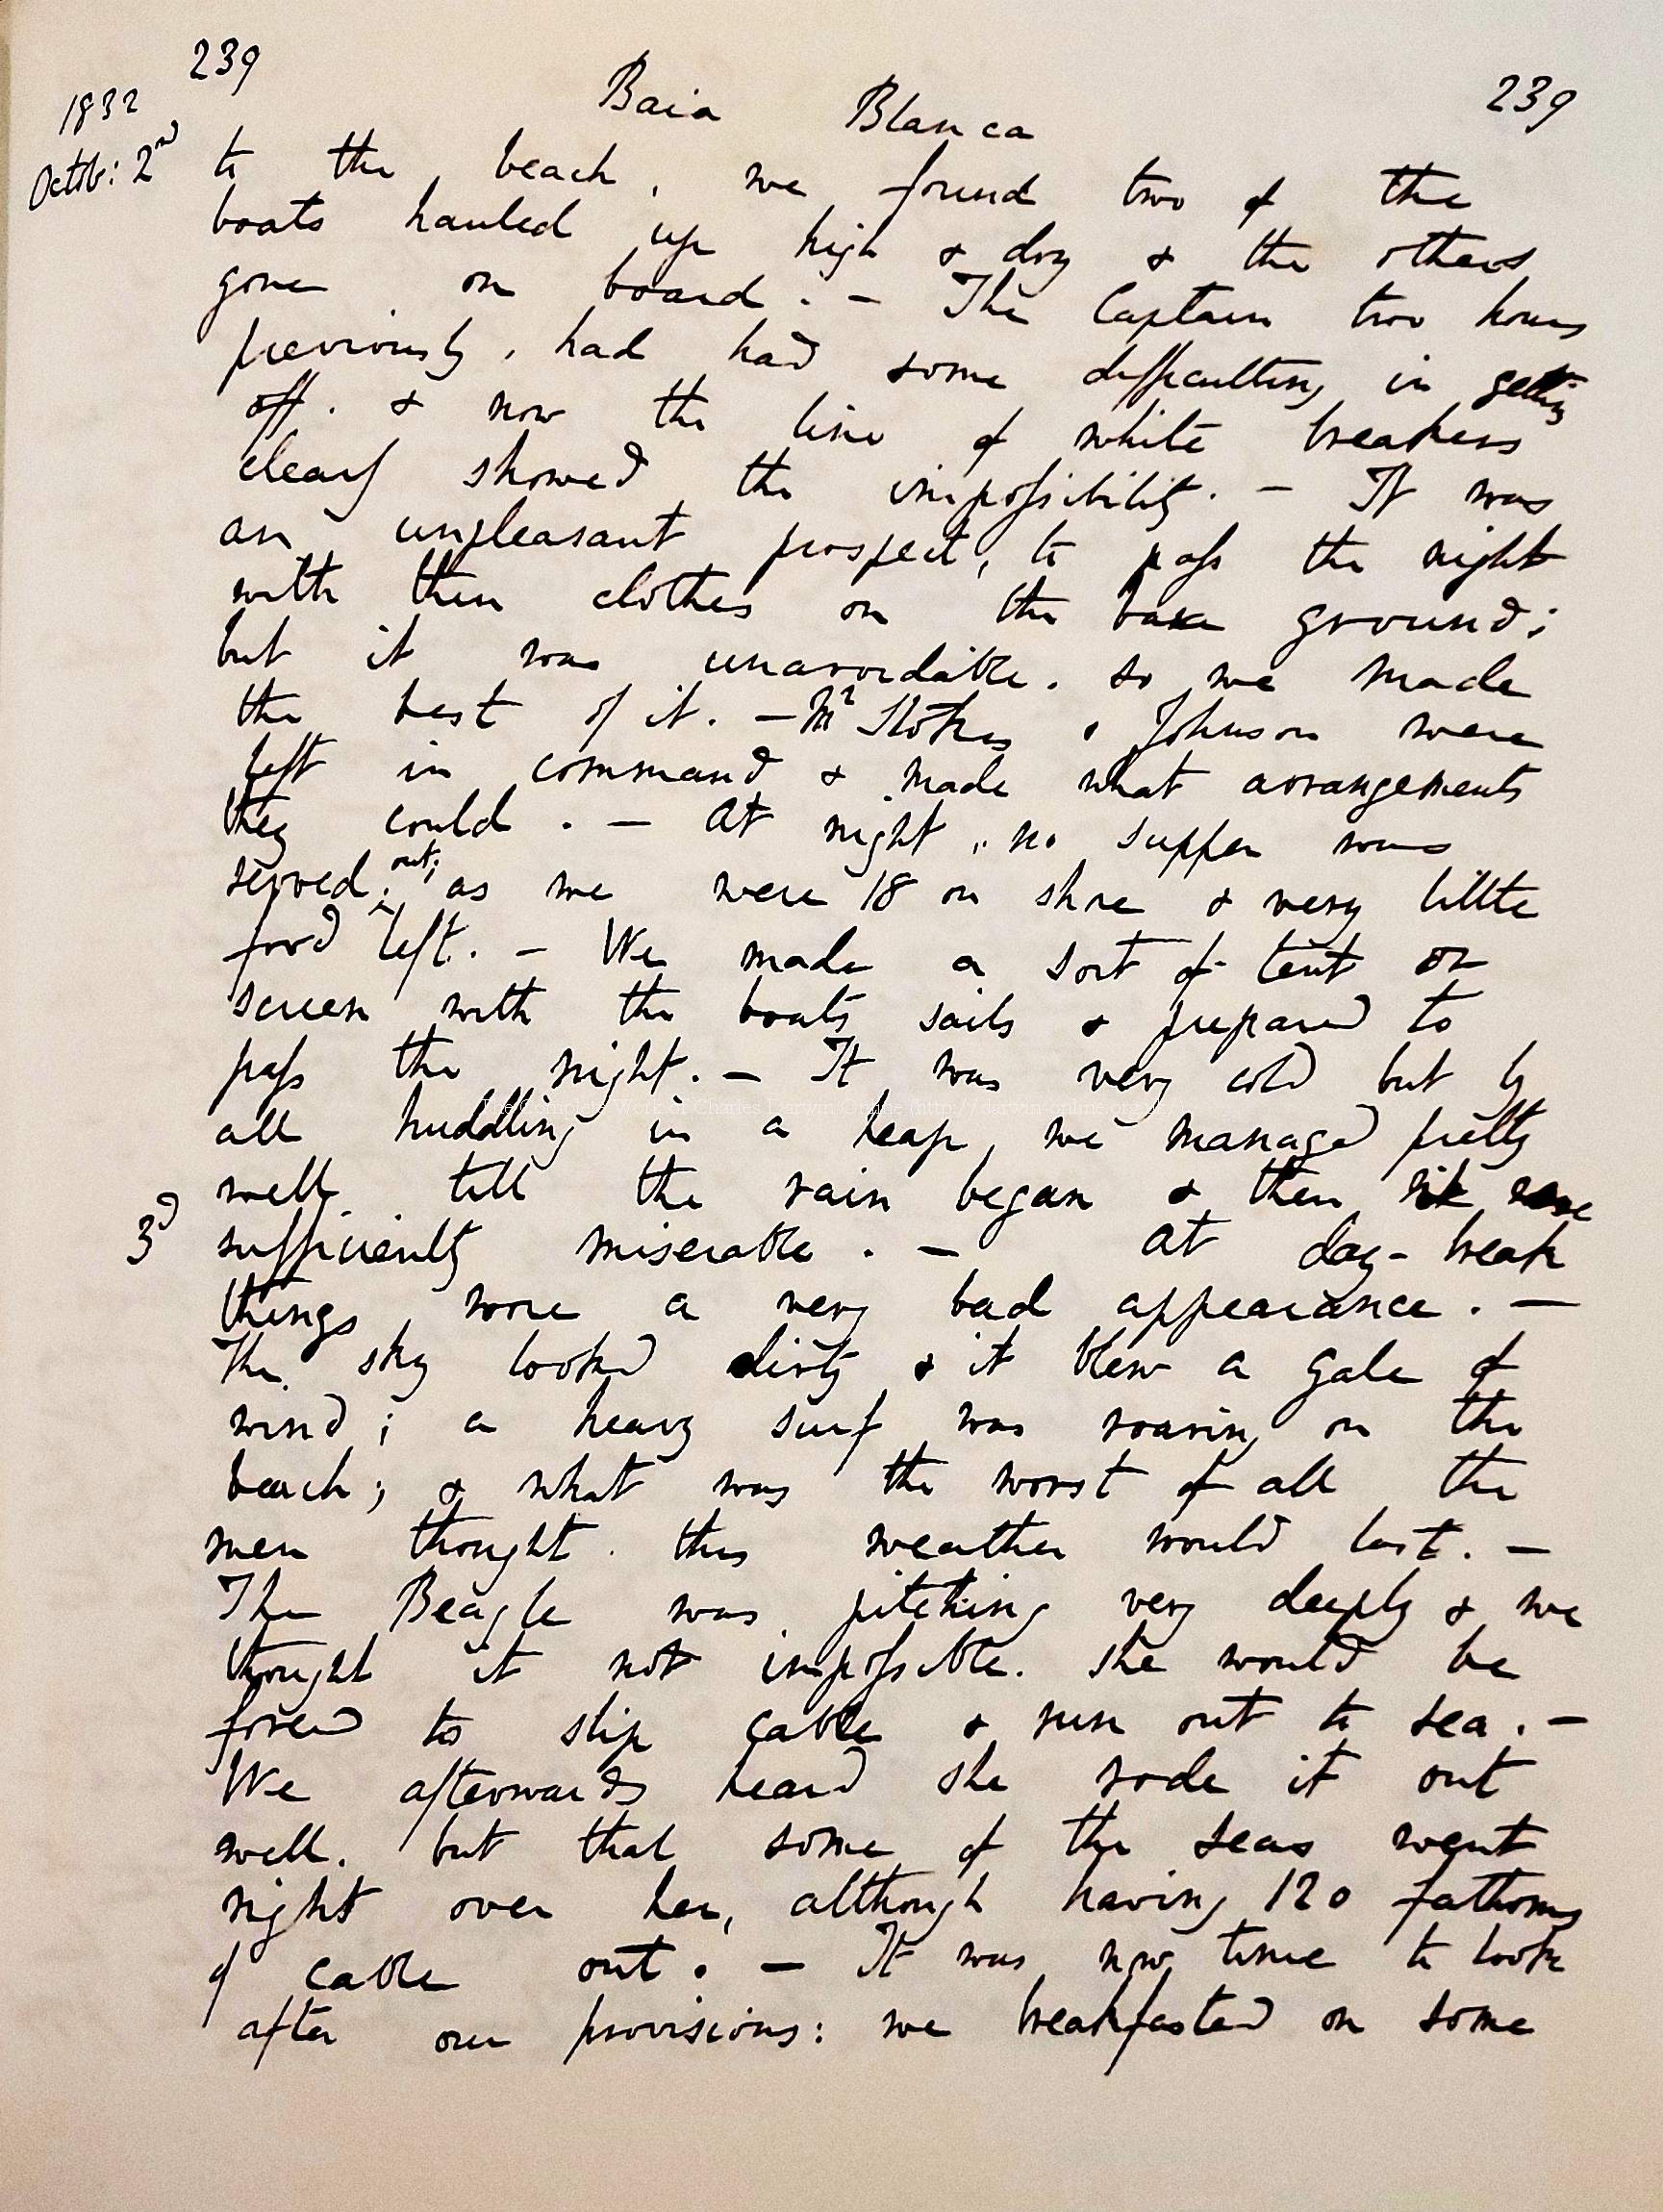 239 Baia Blanca 239
1832
Octob: 2nd to the beach, we found two of the
boats hauled up high & dry & the others
gone on board. — The Captain two hours
previously, had had some difficulting in getting
off. & now the line of white breakers
clearly showed the impossibility. — It was
an unpleasant prospect, to pass the night
with thin clothes on the bare ground;
but it was unavoidable. so we made
the best of it. — Mr Stokes & Johnson were
left in command & made what arrangements
they could. — At night, no supper was
served out; as we were 18 on shore & very little
food left. — We made a sort of tent or
screen with the boats sails & prepared to
pass the night. — It was very cold but by
all huddling in a heap, we managed pretty
well till the rain began & then
3d sufficiently miserable. — At day-break
things wore a very bad appearance. —
The sky looked dirty & it blew a gale of
wind; a heavy surf was roaring on the
beach; & what was the worst of all the
men thought this weather would last. —
The Beagle was pitching very deeply & we
thought it not impossible. she would be
forced to slip cable & run out to sea. —
We afterwards heard she rode it out
well. but that some of the seas went
right over her, although having 120 fathoms
of cable out. — It was now time to look
after our provisions: we breakfasted on some